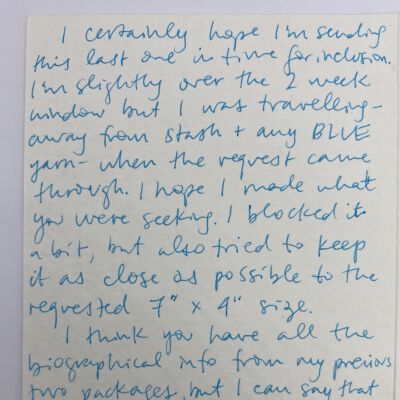 I certainly hope I'm sending
this last one in time for inclusion.
I'm slightly over the 2 week
window but I was travelling-
away from stash + any BLUE
yarn- when the request came
through. I hope I made what
you were seeking. I blocked it
a bit, but also tried to keep
it as close as possible to the
requested 7" x 4" size.
I think you have all the
biographical info from my previous
two packages, but I can say that